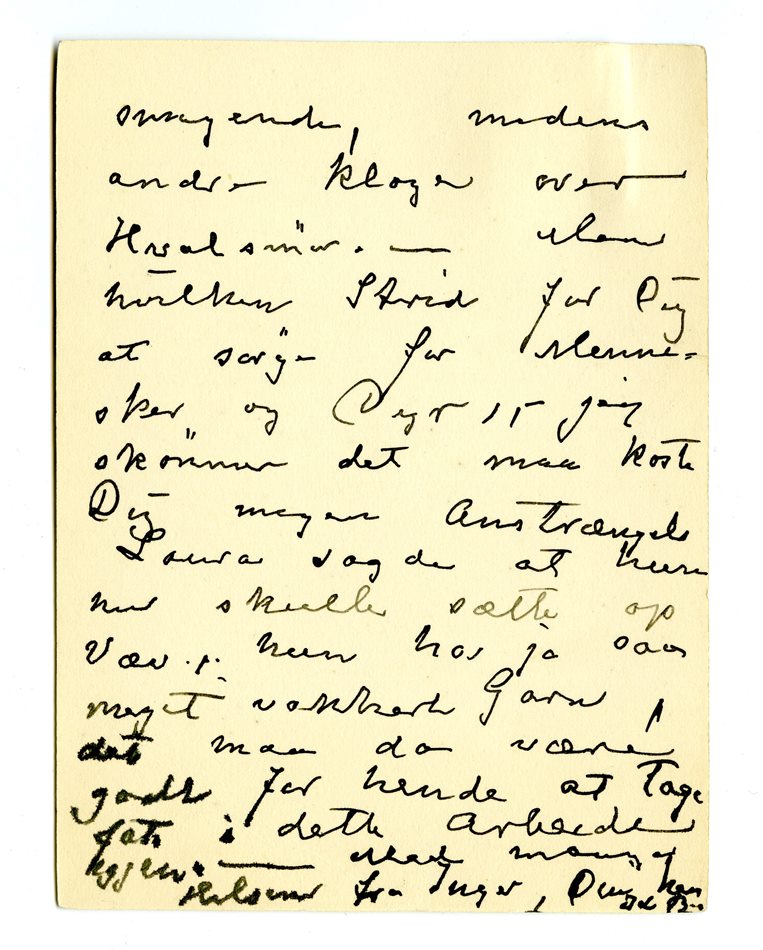 smagende, medens
andre klager over
Hvalsmör. — Men
hvilken Strid for Dig
at sörge for Menne=
sker og Dyr, jeg
skönner det maa koste
Dig megen Anstrængelse
Laura sagde at hun
nu skulle sætte op
Væv.; hun har ja saa
meget vakkert Garn,
det maa da være
godt for hende at tage
fat i dette Arbeide
igjen. — Med mange
Hilsener fra Inger, Din